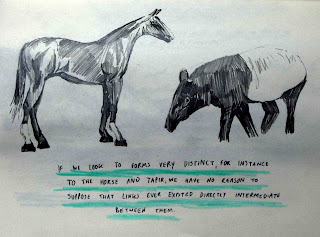 IF WE LOOK TO FORMS VERY DISTINCT, FOR INSTANCE
TO THE HORSE AND TAPIR, WE HAVE NO REASON TO
SUPPOSE THAT LINKS EVER EXISTED DIRECTLY INTERMEDIATE
BETWEEN THEM.